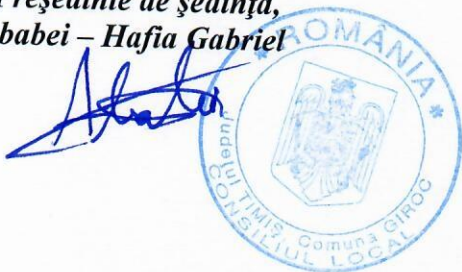 reședinte de ședință,
babei – Hafia Gabriel
* ROMÂNIA *
Județul TIMIȘ, Comuna GIROC
CONSILIUL LOCAL